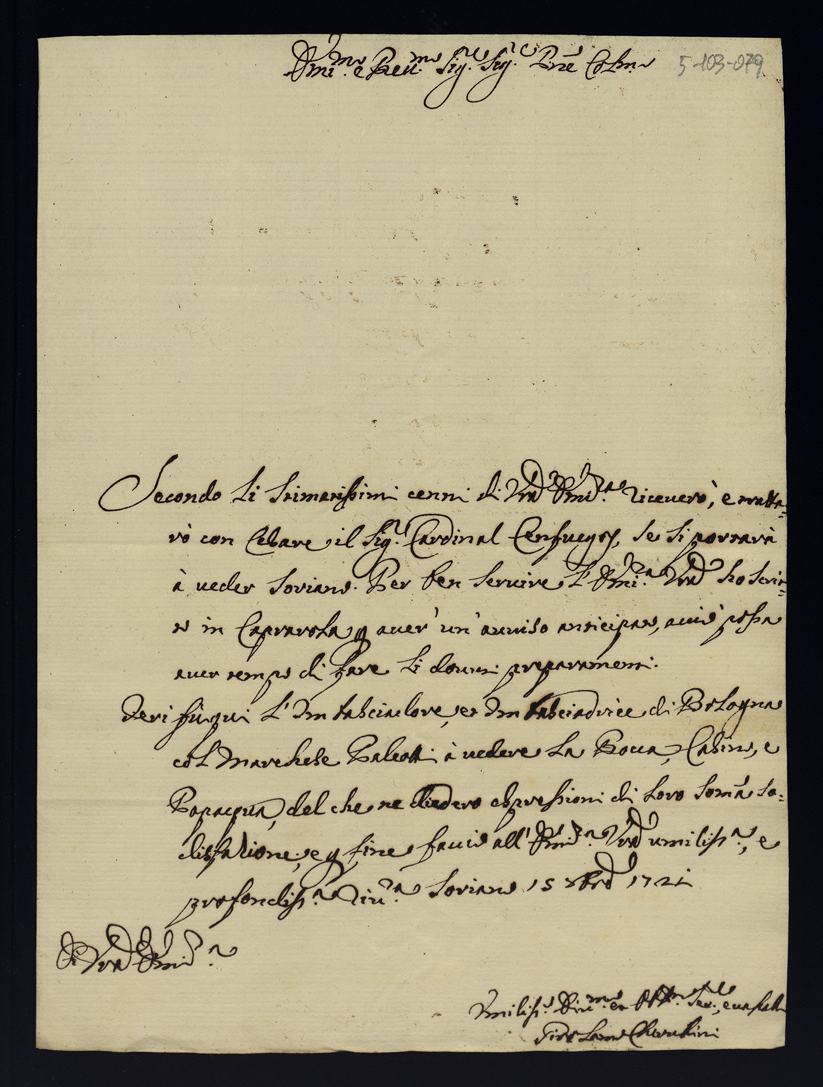 Em.mo e Rev.mo Sig.re Sig.re P.ne Col.mo 5-103-079
Secondo li stimatissimi cenni di Vrã Em.za riceverò, e tratta=
rò con Celare il Sig.r Cardinal Cenfuegos, se si portarà
à veder Soriano. Per ben servire l'Em.za Vrã hò scrit=
to in Caprarola p aver' un' avviso anticipato, acciò possa
aver tempo di fare li dovuti preparamenti.
Jeri fù qui l'Imbasciadore, et Imbasciadrice di Bologna
col Marchese Paleotti à vedere la Rocca, Casino, e
Papacqua, del che ne diedero espressioni di loro som̃a so=
disfazione; e p fine faccio all' Em.za Vrã umiliss.a, e
profondiss.a riv.a Soriano 15 xbre 1721
Di Vrã Em.za
Umiliss.o Div.mo et Obb.mo Ser.e, e vassallo
Cherubini